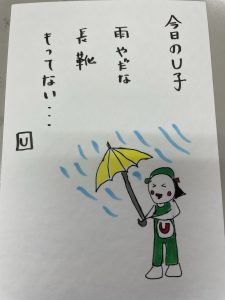 今日のU子
雨やだな
長靴
もってない・・・
U
U